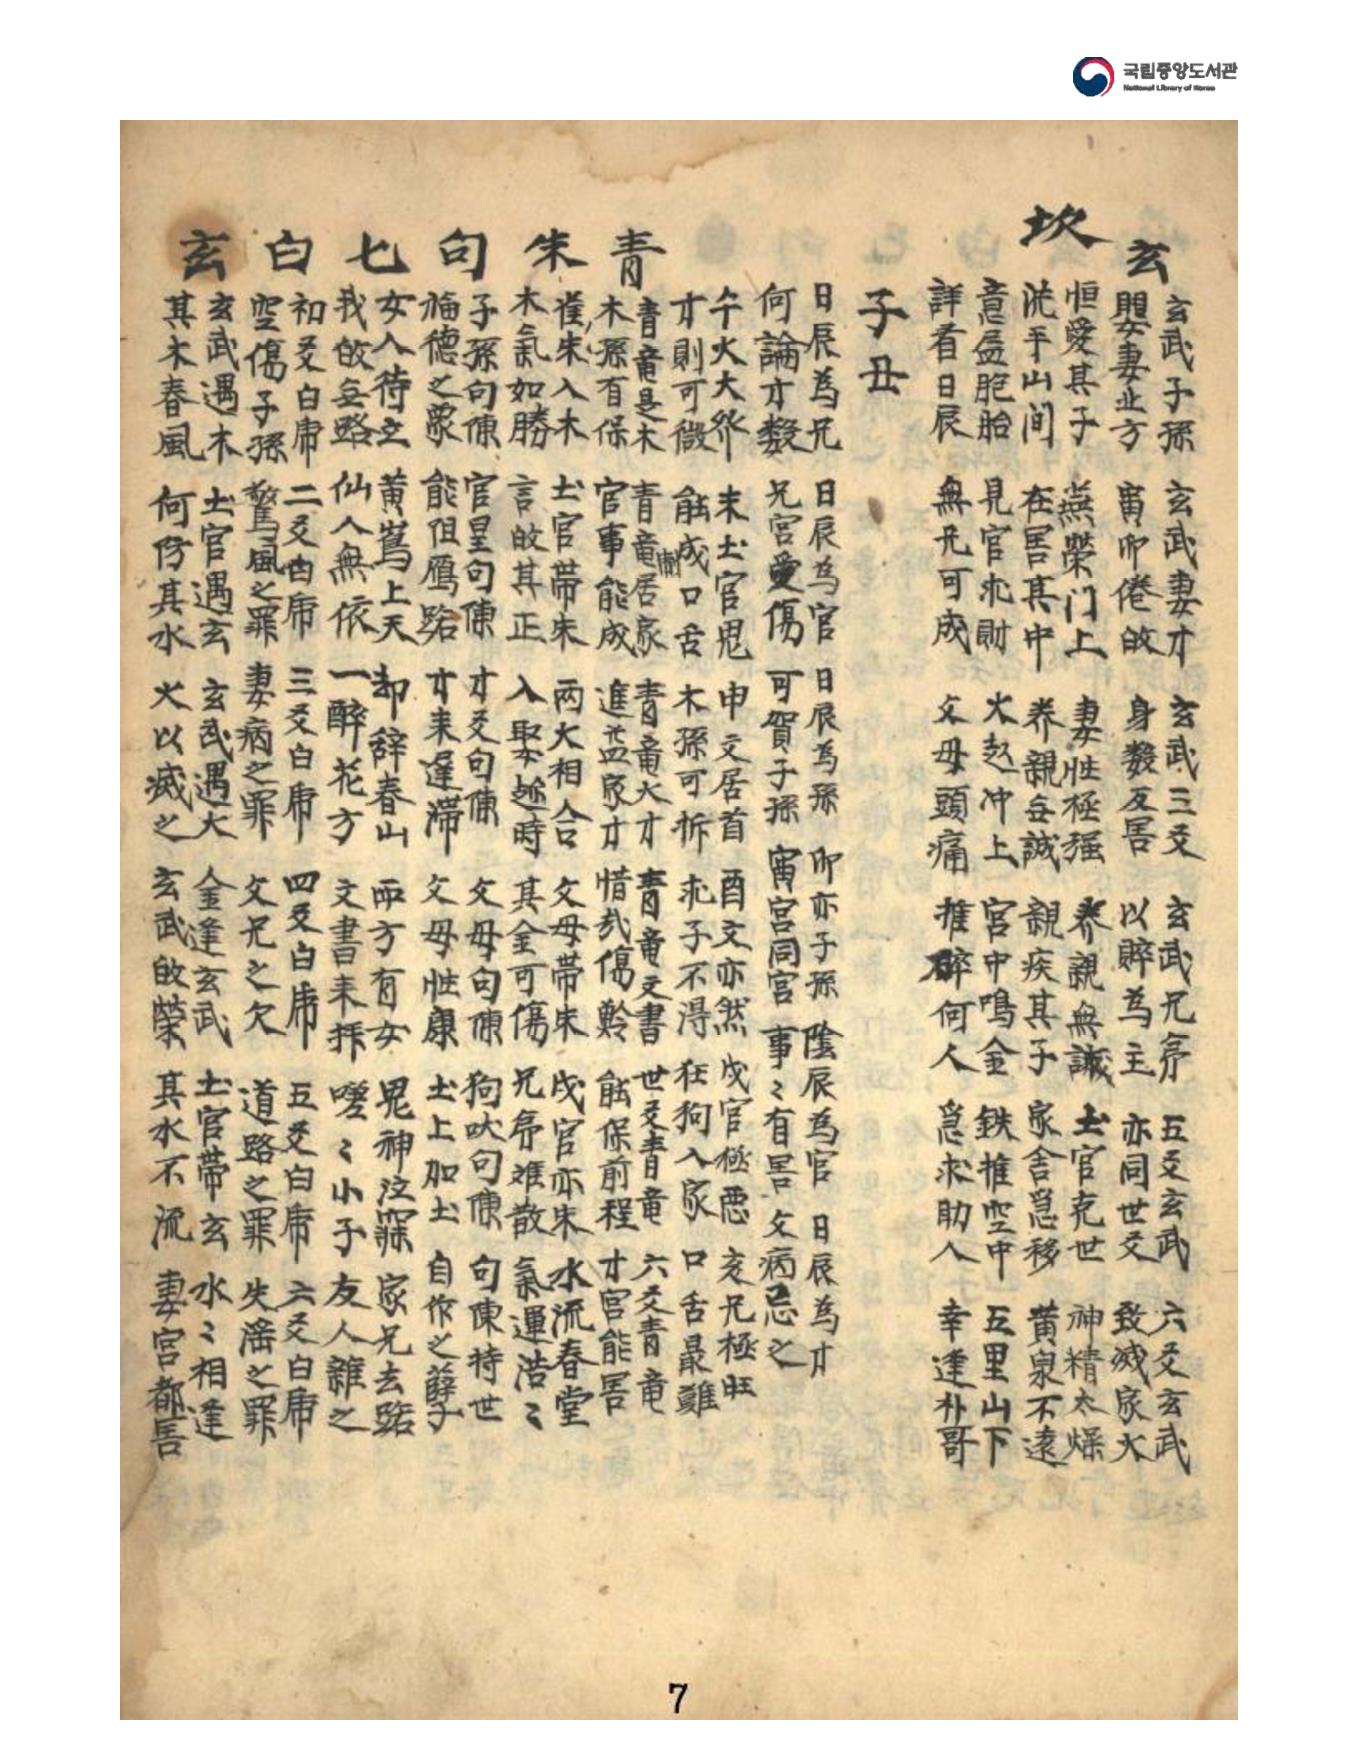 국립중앙도서관
National Library of Korea
玄
玄武子孫 玄武妻才 玄武三爻 玄武兄弟 五爻玄武 六爻玄武
娶妻北方 寅卯倦故 身数反害 以賂為主 亦同世爻 致滅家火
坎
恒愛其子 燕榮门上 妻性極强 养親無誠 土官克世 神精太燥
洗手山间 在害其中 养親無誠 親疾其子 家舍急移 黄泉不遠
意盈胞胎 見官求財 火起冲上 宮中鳴金 鉄椎空中 五里山下
詳看日辰 無兄可成 父母頭痛 推碎何人 急求助人 幸逢朴哥
子丑
日辰為兄 日辰為官 日辰為孫 卯亦子孫 陰辰為官 日辰為才
何論才数 兄宮愛傷 可賀子孫 寅宮同宮 事〻有害 父病忌之
午火大 未土官鬼 申文居首 酉文亦然 戌官極悪 亥兄極旺
才則可微 能成口舌 木孫可折 求子不淂 狂狗入家 口舌最難
青
青竜是木 青竜居家 青竜火才 青竜文書 世爻青竜 六爻青竜
木孫有保 官事能成 進益家才 惜哉傷 能保前程 才宮能害
朱
雀朱入木 土官帯朱 两火相合 父母帯朱 戌官亦朱 水流春堂
木氣如勝 言故其正 入娶 時 其金可傷 兄弟难散 氣運浩〻
句
子孫句陳 官星句陳 才爻句陳 父母句陳 狗吠句陳 句陳持世
福德之象 能阻鴈路 才来逢滞 父母性康 土上加土 自作之孽
七
女人待立 黄鴬上天 却辞春山 两方有女 鬼神泣深 家兄去路
我故無路 仙人無依 一醉花方 文書来拜 嗟〻小子 友人難之
白
初爻白席 二爻白席 三爻白席 四爻白席 五爻白席 六爻白席
空傷子孫 驚風之罪 妻病之罪 父兄之欠 道路之罪 失 之罪
玄
玄武遇木 土官遇玄 玄武遇火 金逢玄武 土官帯玄 水〻相逢
其木春風 何防其水 火以滅之 玄武故榮 其水不流 妻宮都害
7